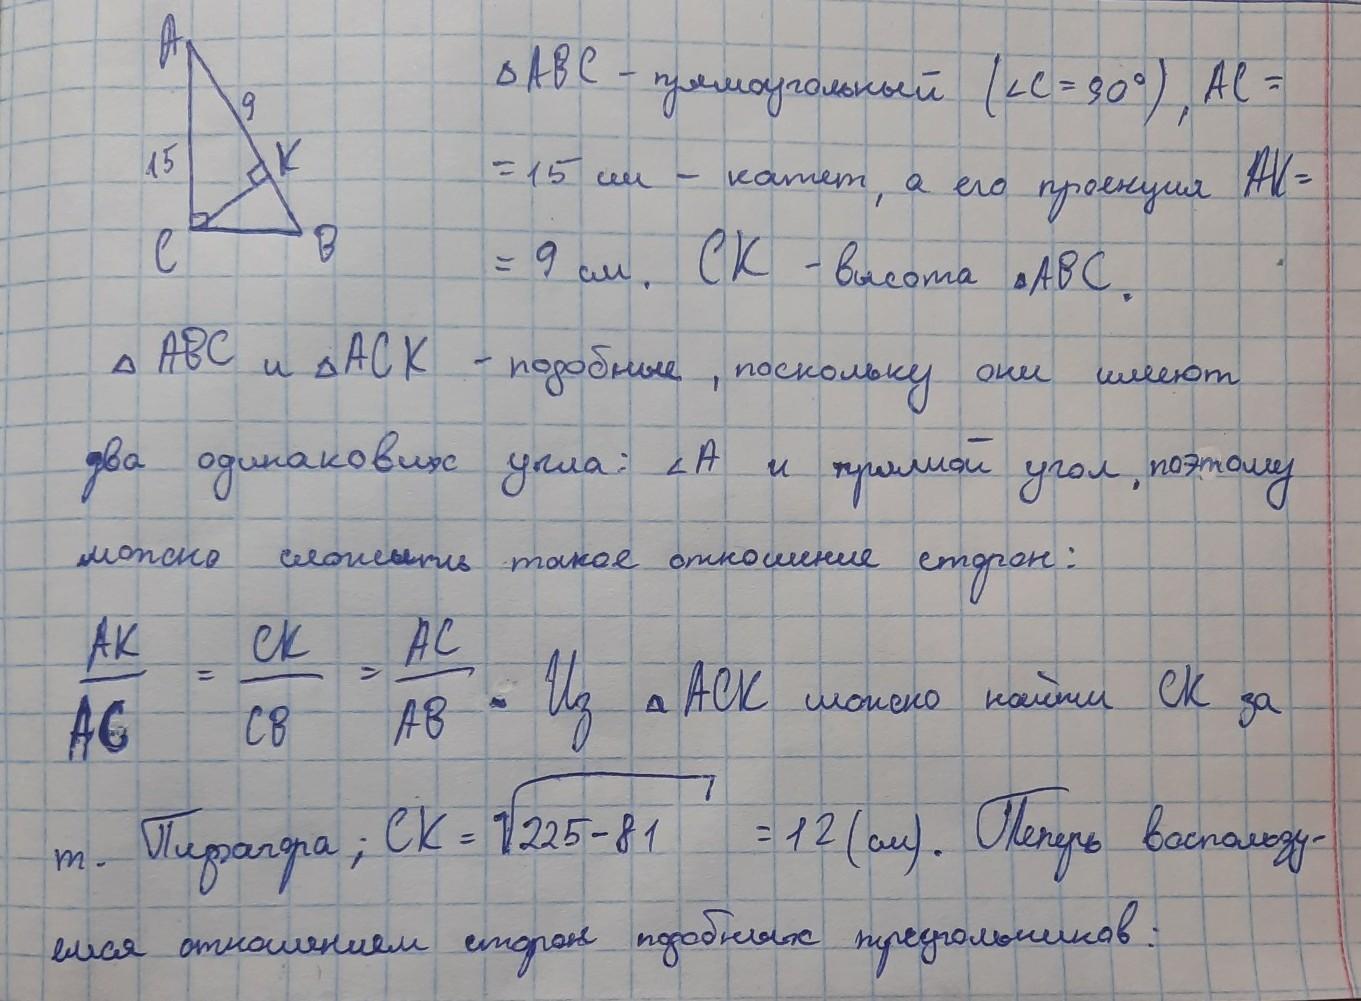 A
9
K
15
C
B
△ABC - прямоугольный (∠C = 90°), AC =
= 15 см - катет, а его проекция AK =
= 9 см. CK - высота △ABC.
△ABC и △ACK - подобные, поскольку они имеют
два одинаковых угла: ∠A и прямой угол, поэтому
можно сложить такое отношение сторон:
AK/AC = CK/CB = AC/AB. Из △ACK можно найти CK за
т. Пифагора; CK = √225-81 = 12 (см). Теперь воспользу-
емся отношением сторон подобных треугольников: